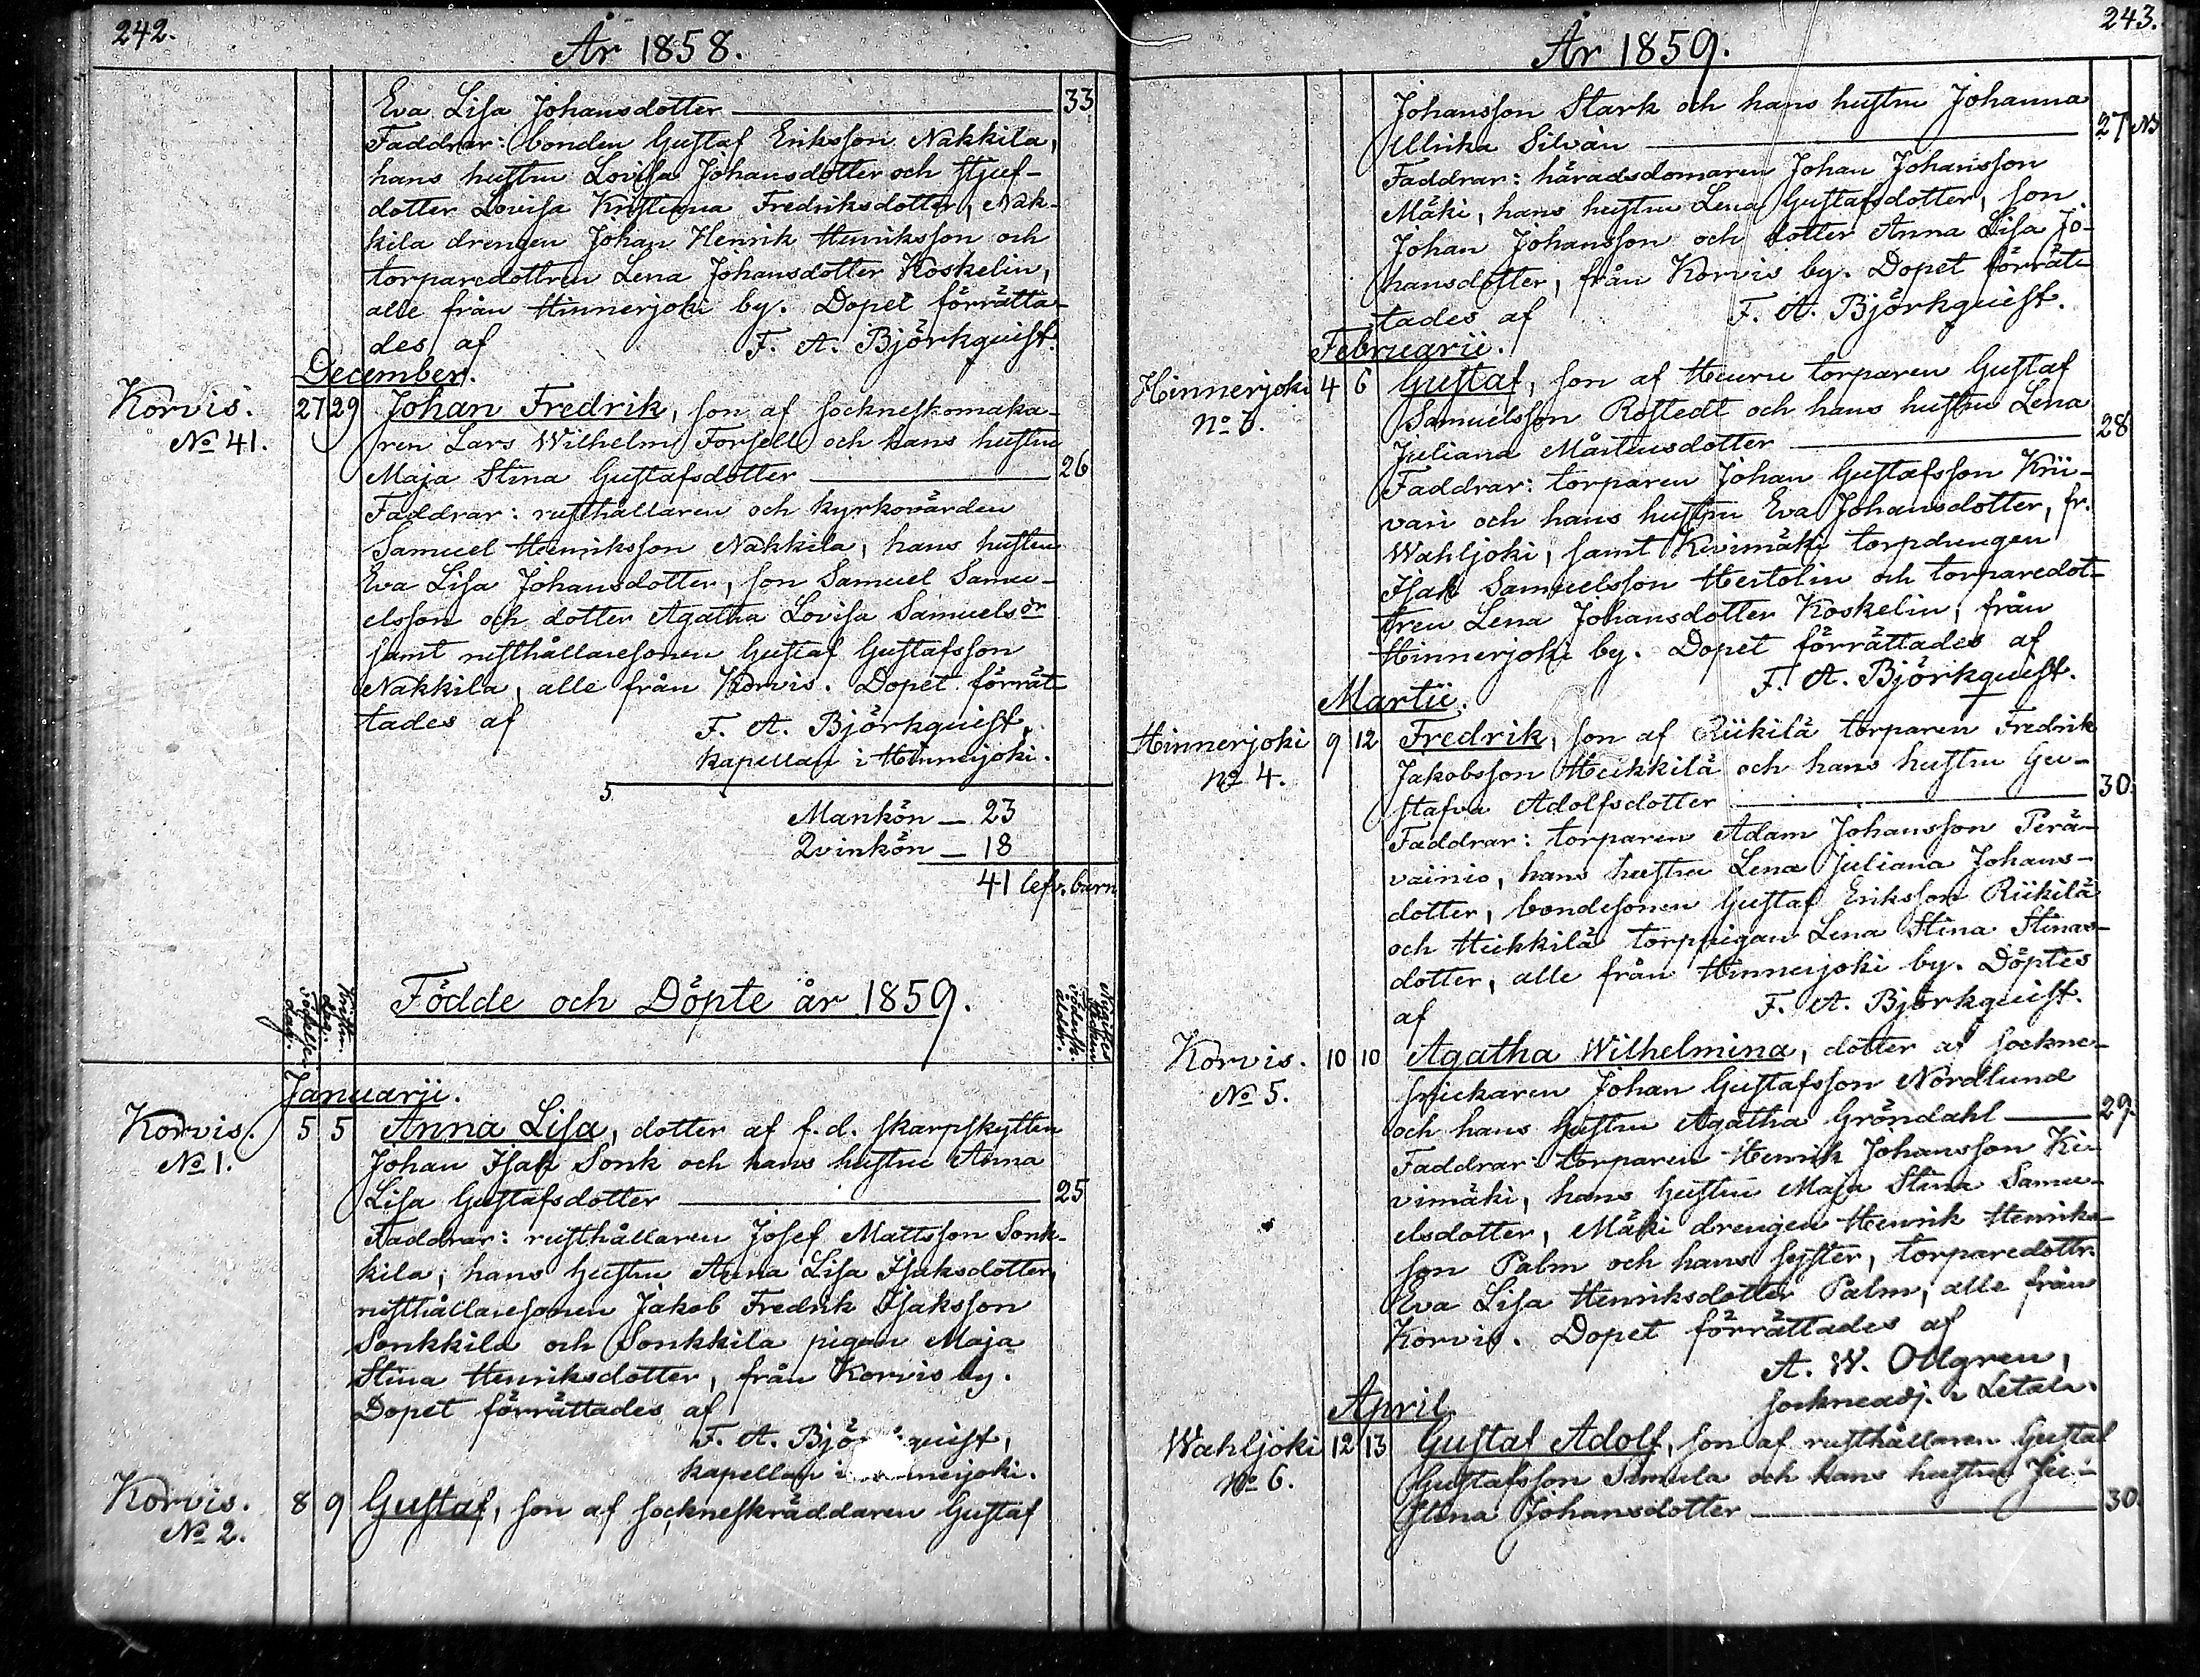 242.
År 1858.
Eva Lisa Johansdotter — 33
Faddrar: bonden Gustaf Eriksson Nakkila,
hans hustru Lovisa Johansdotter och stjuf-
dotter Lovisa Kristiana Fredriksdotter, Nak-
kila drengen Johan Henrik Henriksson och
torparedottren Lena Johansdotter Koskelin,
alle från Hinnerjoki by. Dopet förrätta-
des af F. A. Björkquist.
December.
Korvis. 27 29 Johan Fredrik, son af socknesomaka-
No 41. ren Lars Wilhelm Forsell och hans hustru
Maja Stina Gustafsdotter — 26
Faddrar: rusthållaren och kyrkovärden
Samuel Henriksson Nakkila, hans hustru
Eva Lisa Johansdotter, son Samuel Samu-
elsson och dotter Agatha Lovisa Samuelsdr
samt rusthållaresonen Gustaf Gustafsson
Nakkila, alle från Korvis. Dopet förrät-
tades af F. A. Björkquist,
kapellan i Hinnerjoki.
5
Mankön — 23
Qvinkön — 18
41 lefv. barn
Födde och Döpte år 1859.
Januarii.
Korvis. 5 5 Anna Lisa, dotter af f. d. skarpskytten
No 1. Johan Isak Sonk och hans hustru Anna
Lisa Gustafsdotter — 25
Faddrar: rusthållaren Josef Mattsson Sonk-
kila, hans hustru Anna Lisa Isaksdotter,
rusthållaresonen Jakob Fredrik Isaksson
Sonkkila och Sonkkila pigan Maja
Stina Henriksdotter, från Korvis by.
Dopet förrättades af
F. A. Björ quist,
kapellan i nnerjoki.
Korvis. 8 9 Gustaf, son af sockneskräddaren Gustaf
No 2.
243.
År 1859.
Johansson Stark och hans hustru Johanna
Ulrika Silvan — 27
Faddrar: häradsdomaren Johan Johansson
Mäki, hans hustru Lena Gustafsdotter, son
Johan Johansson och dotter Anna Lisa Jo-
hansdotter, från Korvis by. Dopet förrät-
tades af F. A. Björkquist.
Februarii.
Hinnerjoki 4 6 Gustaf, son af torparen Gustaf
No 3. Samuelsson Rostedt och hans hustru Lena
Juliana Mårtensdotter — 28
Faddrar: torparen Johan Gustafsson Krii-
vari och hans hustru Eva Johansdotter, fr.
Wahljoki, samt Kivimäki torpdrengen
Isak Samuelsson Hertolin och torparedot-
tren Lena Johansdotter Koskelin, från
Hinnerjoki by. Dopet förrättades af
F. A. Björkquist.
Martii.
Hinnerjoki 9 12 Fredrik, son af Riikilä torparen Fredrik
No 4. Jakobsson Heikkilä och hans hustru Gu-
stafva Adolfsdotter — 30.
Faddrar: torparen Adam Johansson Perä-
vainio, hans hustru Lena Juliana Johans-
dotter, bondesonen Gustaf Eriksson Riikilä
och Heikkilä torppigan Lena Stina Stinas-
dotter, alle från Hinnerjoki by. Döptes
af F. A. Björkquist.
Korvis. 10 10 Agatha Wilhelmina, dotter af sockne-
No 5. snickaren Johan Gustafsson Nordlund
och hans hustru Agatha Gröndahl — 29.
Faddrar: torparen Henrik Johansson Ki-
vimäki, hans hustru Maja Stina Samu-
elsdotter, Mäki drengen Henrik Henriks-
son Palm och hans syster, torparedottr.
Eva Lisa Henriksdotter Palm, alle från
Korvis. Dopet förrättades af
A. W. Ollgren,
sockneadj. i Letala.
April.
Wahljoki 12 13 Gustaf Adolf, son af rusthållaren Gustaf
No 6. Gustafsson Simula och hans hustru Ju-
stina Johansdotter — 30.